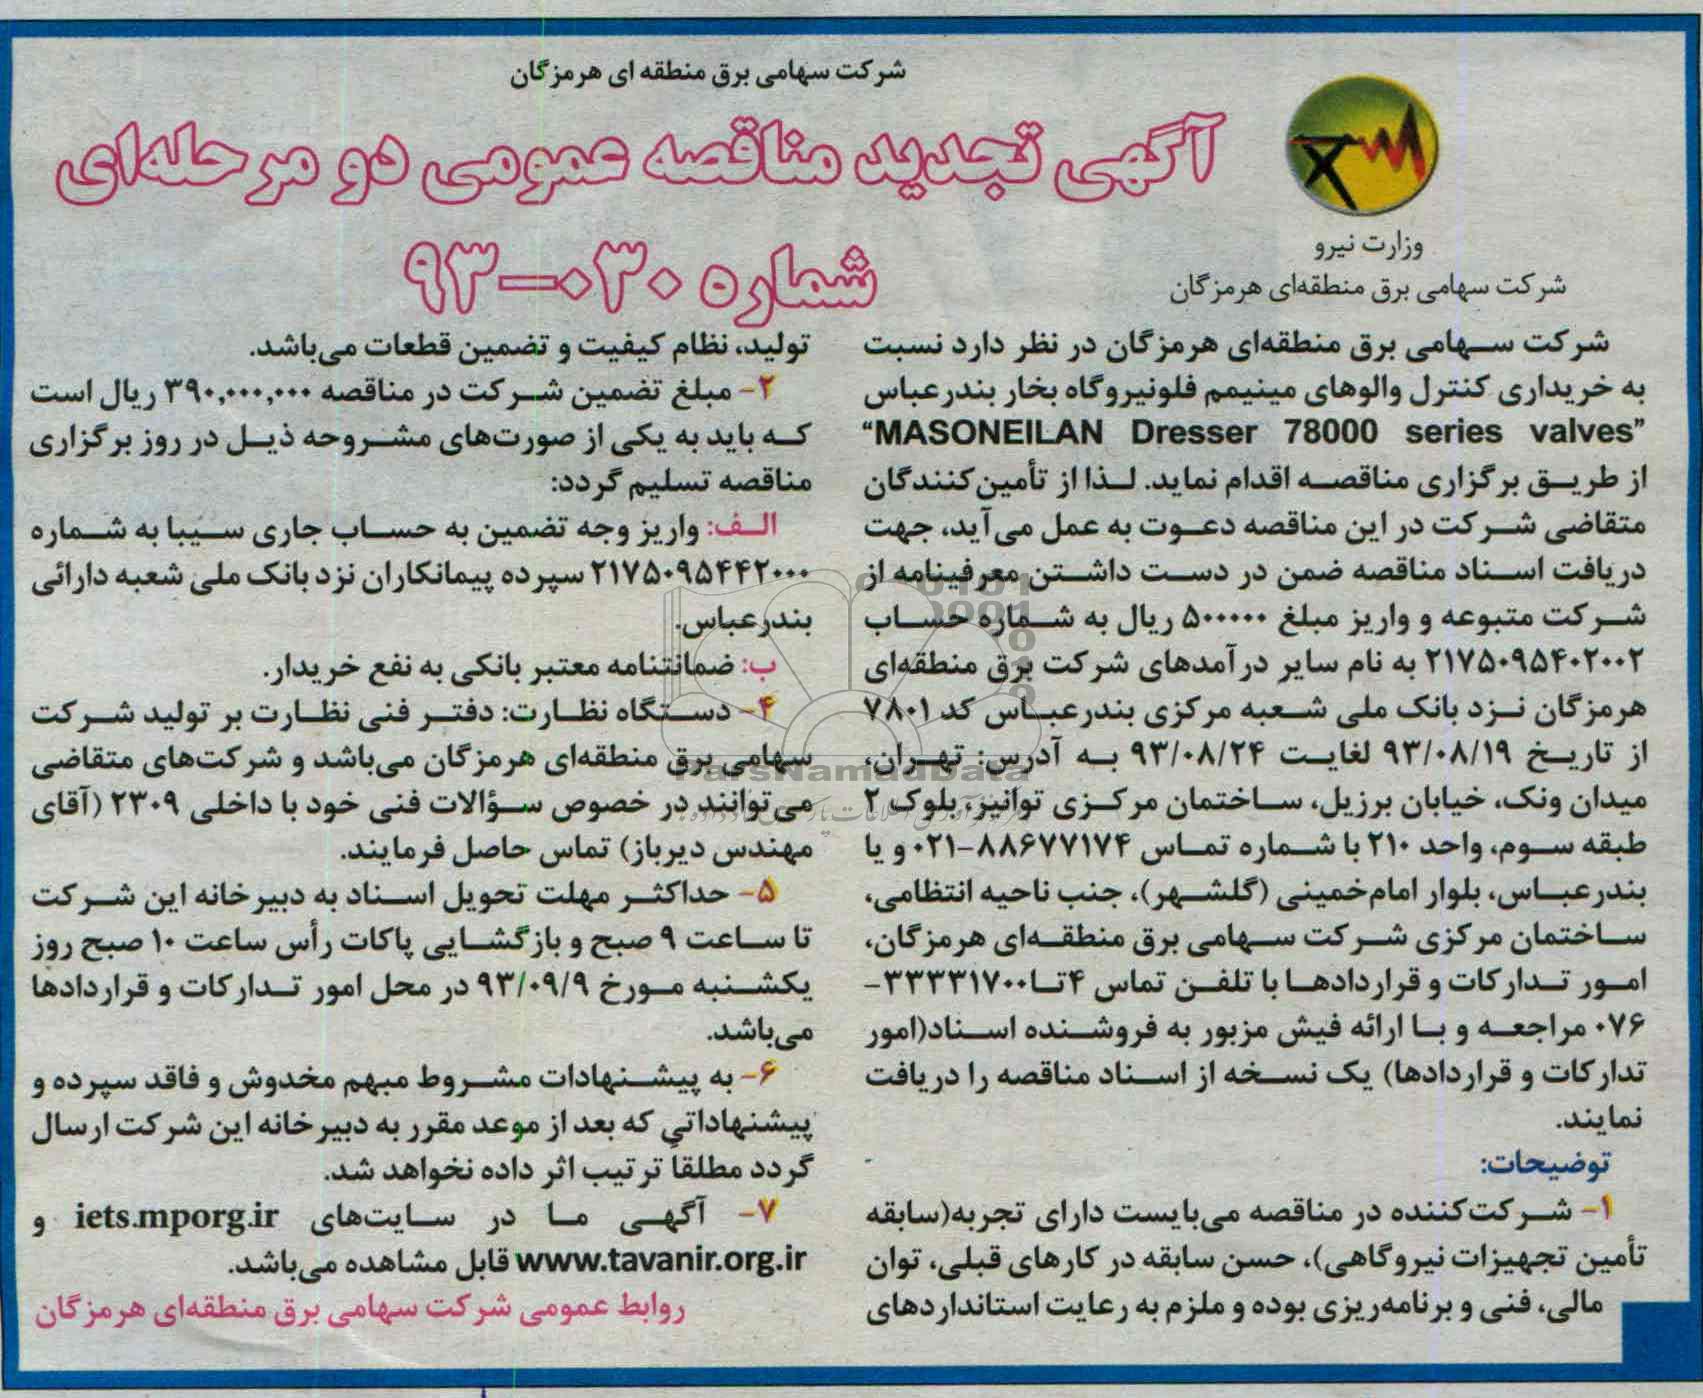 شرکت سهامی برق منطقه ای هرمزگان
آگهی تجدید مناقصه عمومی دو مرحله‌ای
شماره ۰۳۰-۹۳
وزارت نیرو
شرکت سهامی برق منطقه‌ای هرمزگان
شرکت سهامی برق منطقه‌ای هرمزگان در نظر دارد نسبت
به خریداری کنترل والوهای مینیمم فلونیروگاه بخار بندرعباس
“MASONEILAN Dresser 78000 series valves”
از طریق برگزاری مناقصه اقدام نماید. لذا از تأمین‌کنندگان
متقاضی شرکت در این مناقصه دعوت به عمل می‌آید، جهت
دریافت اسناد مناقصه ضمن در دست داشتن معرفینامه از
شرکت متبوعه و واریز مبلغ ۵۰۰۰۰۰ ریال به شماره حساب
۲۱۷۵۰۹۵۴۰۲۰۰۲ به نام سایر درآمدهای شرکت برق منطقه‌ای
هرمزگان نزد بانک ملی شعبه مرکزی بندرعباس کد ۷۸۰۱
از تاریخ ۹۳/۰۸/۱۹ لغایت ۹۳/۰۸/۲۴ به آدرس: تهران،
میدان ونک، خیابان برزیل، ساختمان مرکزی توانیر، بلوک ۲
طبقه سوم، واحد ۲۱۰ با شماره تماس ۸۸۶۷۷۱۷۴-۰۲۱ و یا
بندرعباس، بلوار امام‌خمینی (گلشهر)، جنب ناحیه انتظامی،
ساختمان مرکزی شرکت سهامی برق منطقه‌ای هرمزگان،
امور تدارکات و قراردادها با تلفن تماس ۴تا۳۳۳۳۱۷۰۰-
۰۷۶ مراجعه و با ارائه فیش مزبور به فروشنده اسناد(امور
تدارکات و قراردادها) یک نسخه از اسناد مناقصه را دریافت
نمایند.
توضیحات:
۱- شرکت‌کننده در مناقصه می‌بایست دارای تجربه(سابقه
تأمین تجهیزات نیروگاهی)، حسن سابقه در کارهای قبلی، توان
مالی، فنی و برنامه‌ریزی بوده و ملزم به رعایت استانداردهای
تولید، نظام کیفیت و تضمین قطعات می‌باشد.
۲- مبلغ تضمین شرکت در مناقصه ۳۹۰,۰۰۰,۰۰۰ ریال است
که باید به یکی از صورت‌های مشروحه ذیل در روز برگزاری
مناقصه تسلیم گردد:
الف: واریز وجه تضمین به حساب جاری سیبا به شماره
۲۱۷۵۰۹۵۴۴۲۰۰۰ سپرده پیمانکاران نزد بانک ملی شعبه دارائی
بندرعباس.
ب: ضمانتنامه معتبر بانکی به نفع خریدار.
۴- دستگاه نظارت: دفتر فنی نظارت بر تولید شرکت
سهامی برق منطقه‌ای هرمزگان می‌باشد و شرکت‌های متقاضی
می‌توانند در خصوص سؤالات فنی خود با داخلی ۲۳۰۹ (آقای
مهندس دیرباز) تماس حاصل فرمایند.
۵- حداکثر مهلت تحویل اسناد به دبیرخانه این شرکت
تا ساعت ۹ صبح و بازگشایی پاکات رأس ساعت ۱۰ صبح روز
یکشنبه مورخ ۹۳/۰۹/۹ در محل امور تدارکات و قراردادها
می‌باشد.
۶- به پیشنهادات مشروط مبهم مخدوش و فاقد سپرده و
پیشنهاداتی که بعد از موعد مقرر به دبیرخانه این شرکت ارسال
گردد مطلقاً ترتیب اثر داده نخواهد شد.
۷- آگهی ما در سایت‌های iets.mporg.ir و
www.tavanir.org.ir قابل مشاهده می‌باشد.
روابط عمومی شرکت سهامی برق منطقه‌ای هرمزگان
ParsNamadData